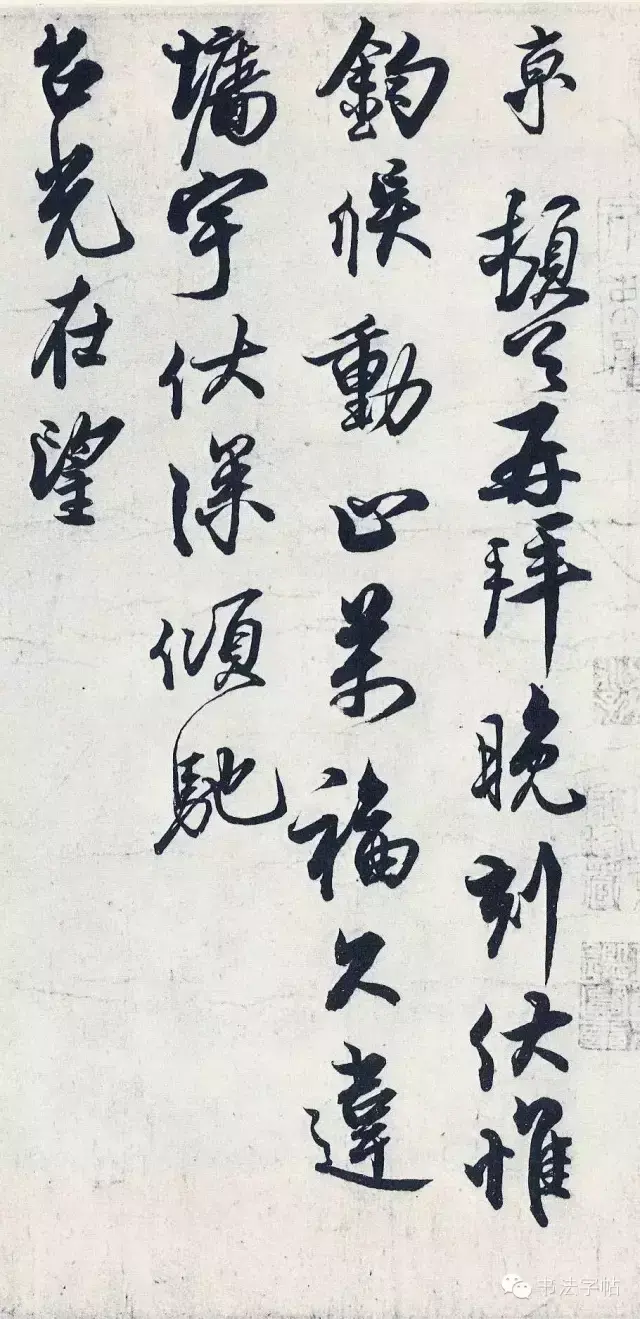 京 頓首再拜晚刻伏惟
鈞候動止萬福久違
墻宇伏深傾馳
台光在望
书法字帖